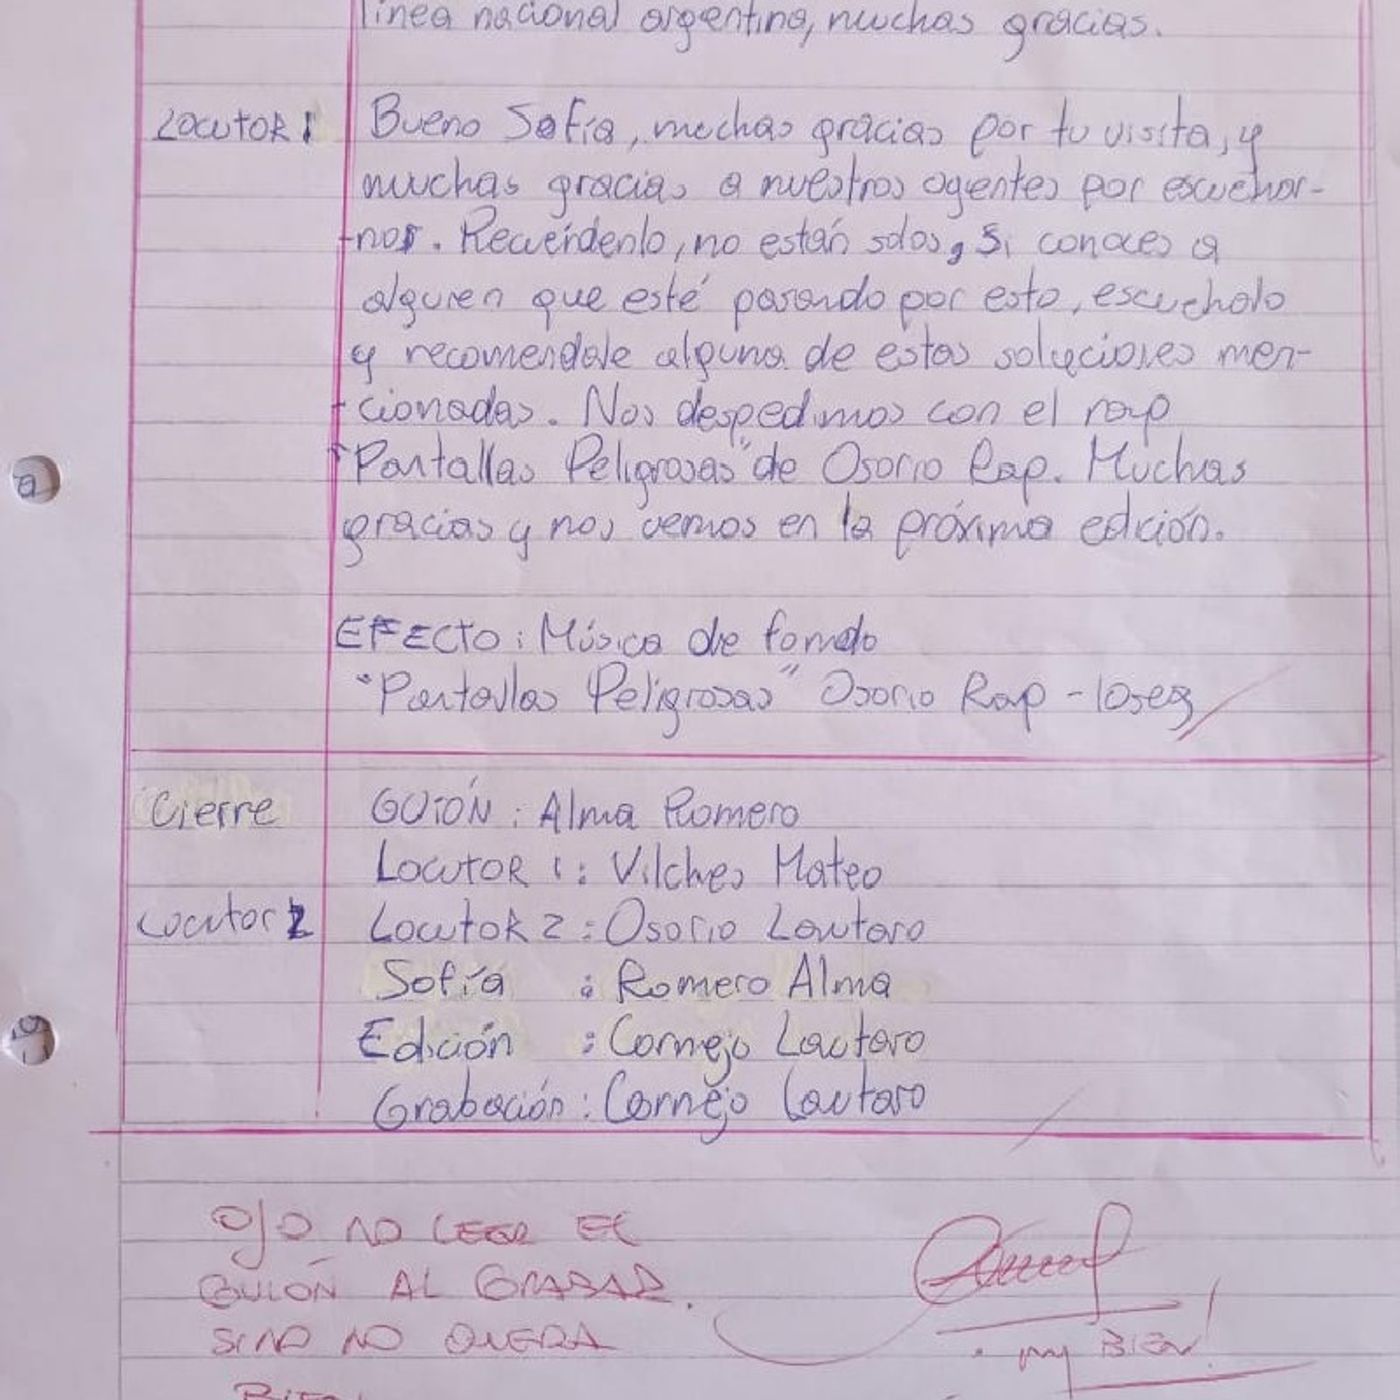 línea nacional argentina, muchas gracias.
Locutor 1 Bueno Sofía, muchas gracias por tu visita, y
muchas gracias a nuestros agentes por escuchar-
-nos. Recuérdenlo, no están solos, Si conoces a
alguien que esté pasando por esto, escuchalo
y recomendale alguna de estas soluciones men-
-cionadas. Nos despedimos con el rap
"Pantallas Peligrosas" de Osorio Rap. Muchas
gracias y nos vemos en la próxima edición.
EFECTO: Música de fondo
"Pantallas Peligrosas" Osorio Rap - 10seg
Cierre GUIÓN: Alma Romero
Locutor 1: Vilches Mateo
Locutor 2 Locutor 2: Osorio Lautaro
Sofía : Romero Alma
Edición : Cornejo Lautaro
Grabación: Cornejo Lautaro
OJO NO LEER EL
GUIÓN AL GRABAR.
SINO NO QUEDA
BIEN
muy BIEN!